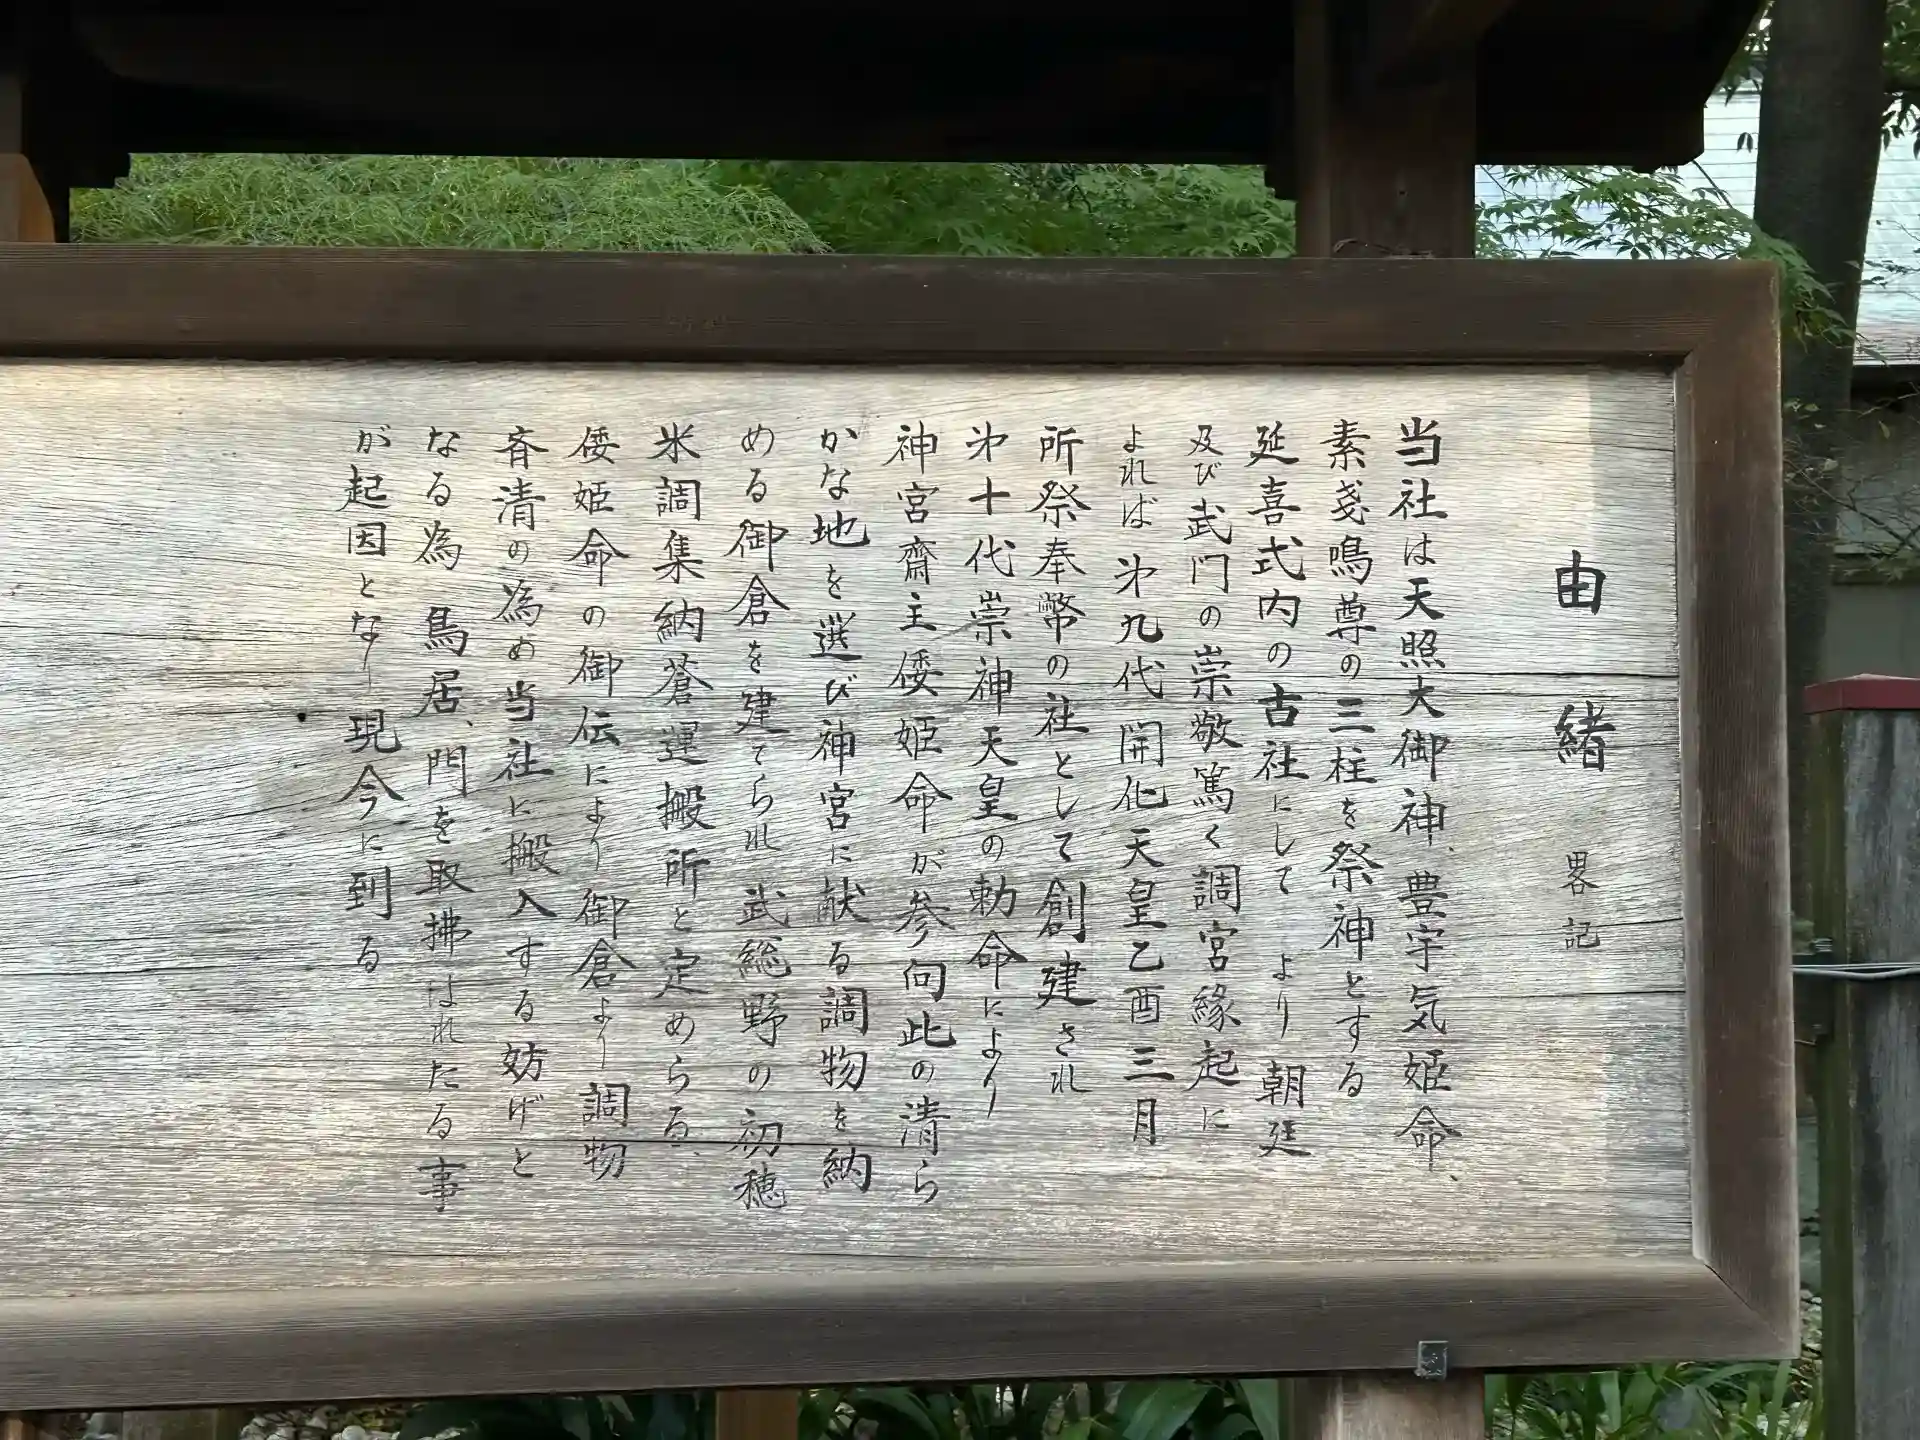 由緒 畧記
当社は天照大御神、豊宇気姫命、
素戔鳴尊の三柱を祭神とする
延喜式内の古社にして より朝廷
及び武門の崇敬篤く調宮縁起に
よれば 㐧九代開化天皇乙酉三月
所祭奉幣の社として創建され
㐧十代崇神天皇の勅命により
神宮齋主倭姫命が参向此の清ら
かな地を選び神宮に献る調物を納
める御倉を建てられ武総野の初穂
米調集納蒼運搬所と定めらる、
倭姫命の御伝により御倉より調物
斉清の為め当社に搬入する妨げと
なる為 鳥居、門を取拂はれたる事
が起因となり現今に到る